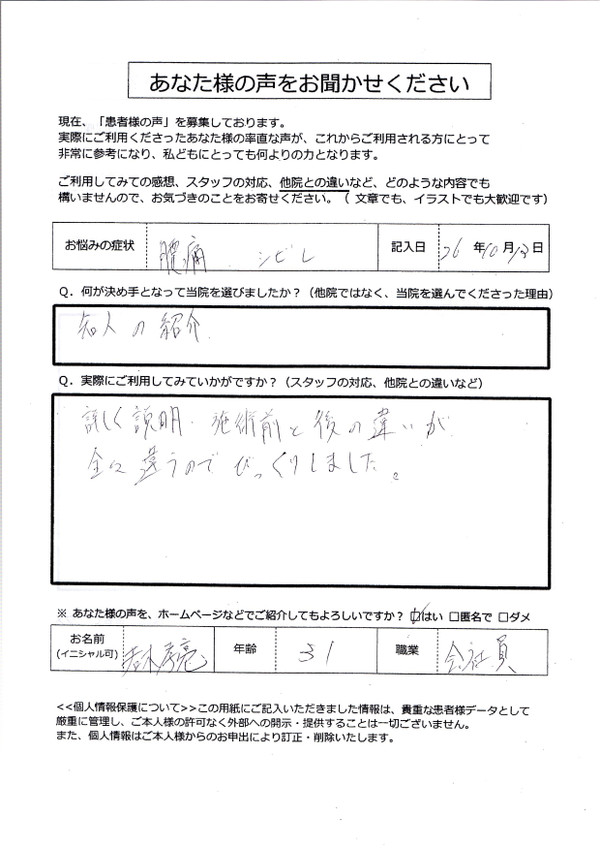 あなた様の声をお聞かせください
現在、「患者様の声」を募集しております。
実際にご利用くださったあなた様の率直な声が、これからご利用される方にとって
非常に参考になり、私どもにとっても何よりの力となります。
ご利用してみての感想、スタッフの対応、他院との違いなど、どのような内容でも
構いませんので、お気づきのことをお寄せください。（ 文章でも、イラストでも大歓迎です）
お悩みの症状 腰痛 シビレ 記入日 26 年 10 月 13 日
Q．何が決め手となって当院を選びましたか？（他院ではなく、当院を選んでくださった理由）
知人の紹介
Q．実際にご利用してみていかがですか？（スタッフの対応、他院との違いなど）
詳しく説明・施術前と後の違いが
全々違うのでびっくりしました。
※ あなた様の声を、ホームページなどでご紹介してもよろしいですか？ ☑はい □匿名で □ダメ
お名前 年齢 31 職業 会社員
(イニシャル可)
<<個人情報保護について>>この用紙にご記入いただきました情報は、貴重な患者様データとして
厳重に管理し、ご本人様の許可なく外部への開示・提供することは一切ございません。
また、個人情報はご本人様からのお申出により訂正・削除いたします。